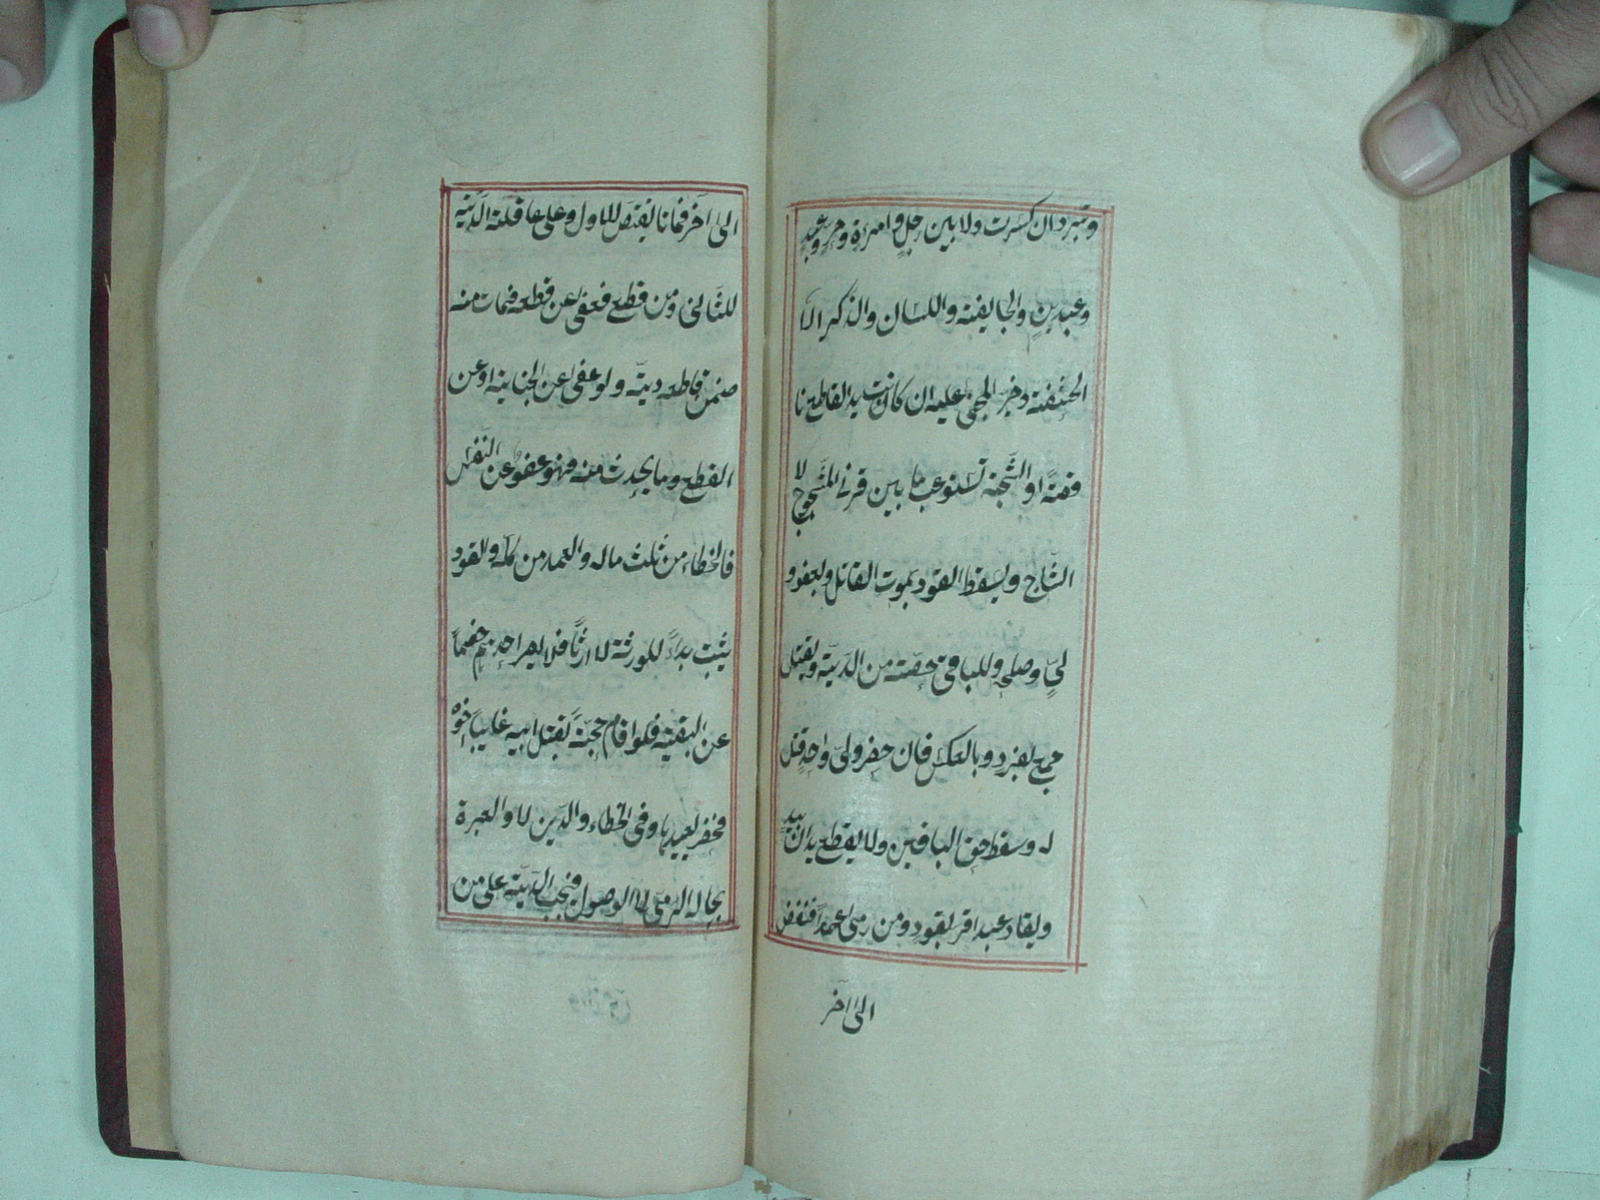 وتبرد ان كسرت ولا بين رجل وامرءة وحر وعبد
وعبدين والجايفة واللسان والذكر الا
الحشفة وخير المجنى عليه ان كانت يد القاطع نا
قصة او الشجة تستوعب ما بين قرني المشجوج لا
الشاج ويسقط القود بموت القاتل وبعفو و
لي وصلحه وللباقي حصته من الدية ويقتل
جمع بفرد وبالعكس فان حضر ولي واحد قتل
له وسقط حق الباقين ولا يقطع يدان بيد
ويقاد عبد اقر بقود ومن رمى عمدا فنفض
الى اخر
الى اخر فماتا يقتص للاول وعلى عاقلته الدية
للثاني ومن قطع فعفى عن قطعه فمات منه
ضمن قاطعه ديته ولو عفى عن الجناية او عن
القطع وما يحدث منه فهو عفو عن النفس
فالخطاء من ثلث ماله والعمد من كله والقود
يثبت بداءً للورثة لا ارثًا فلا يصر احدهم خصمًا
عن البقية فلو اقام حجة بقتل ابيه غايبًا اخوه
فحضر يعيدها وفي الخطاء والدين لا والعبرة
بحالة الرمى لا الوصول فتجب الدية على من